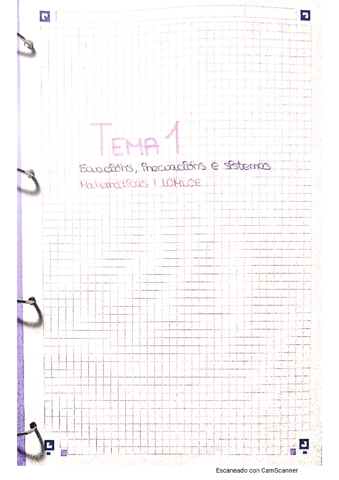 TEMA 1
Ecuacións, inecuacións e sistemas
Matemáticas I LOMLOE
Escaneado con CamScanner